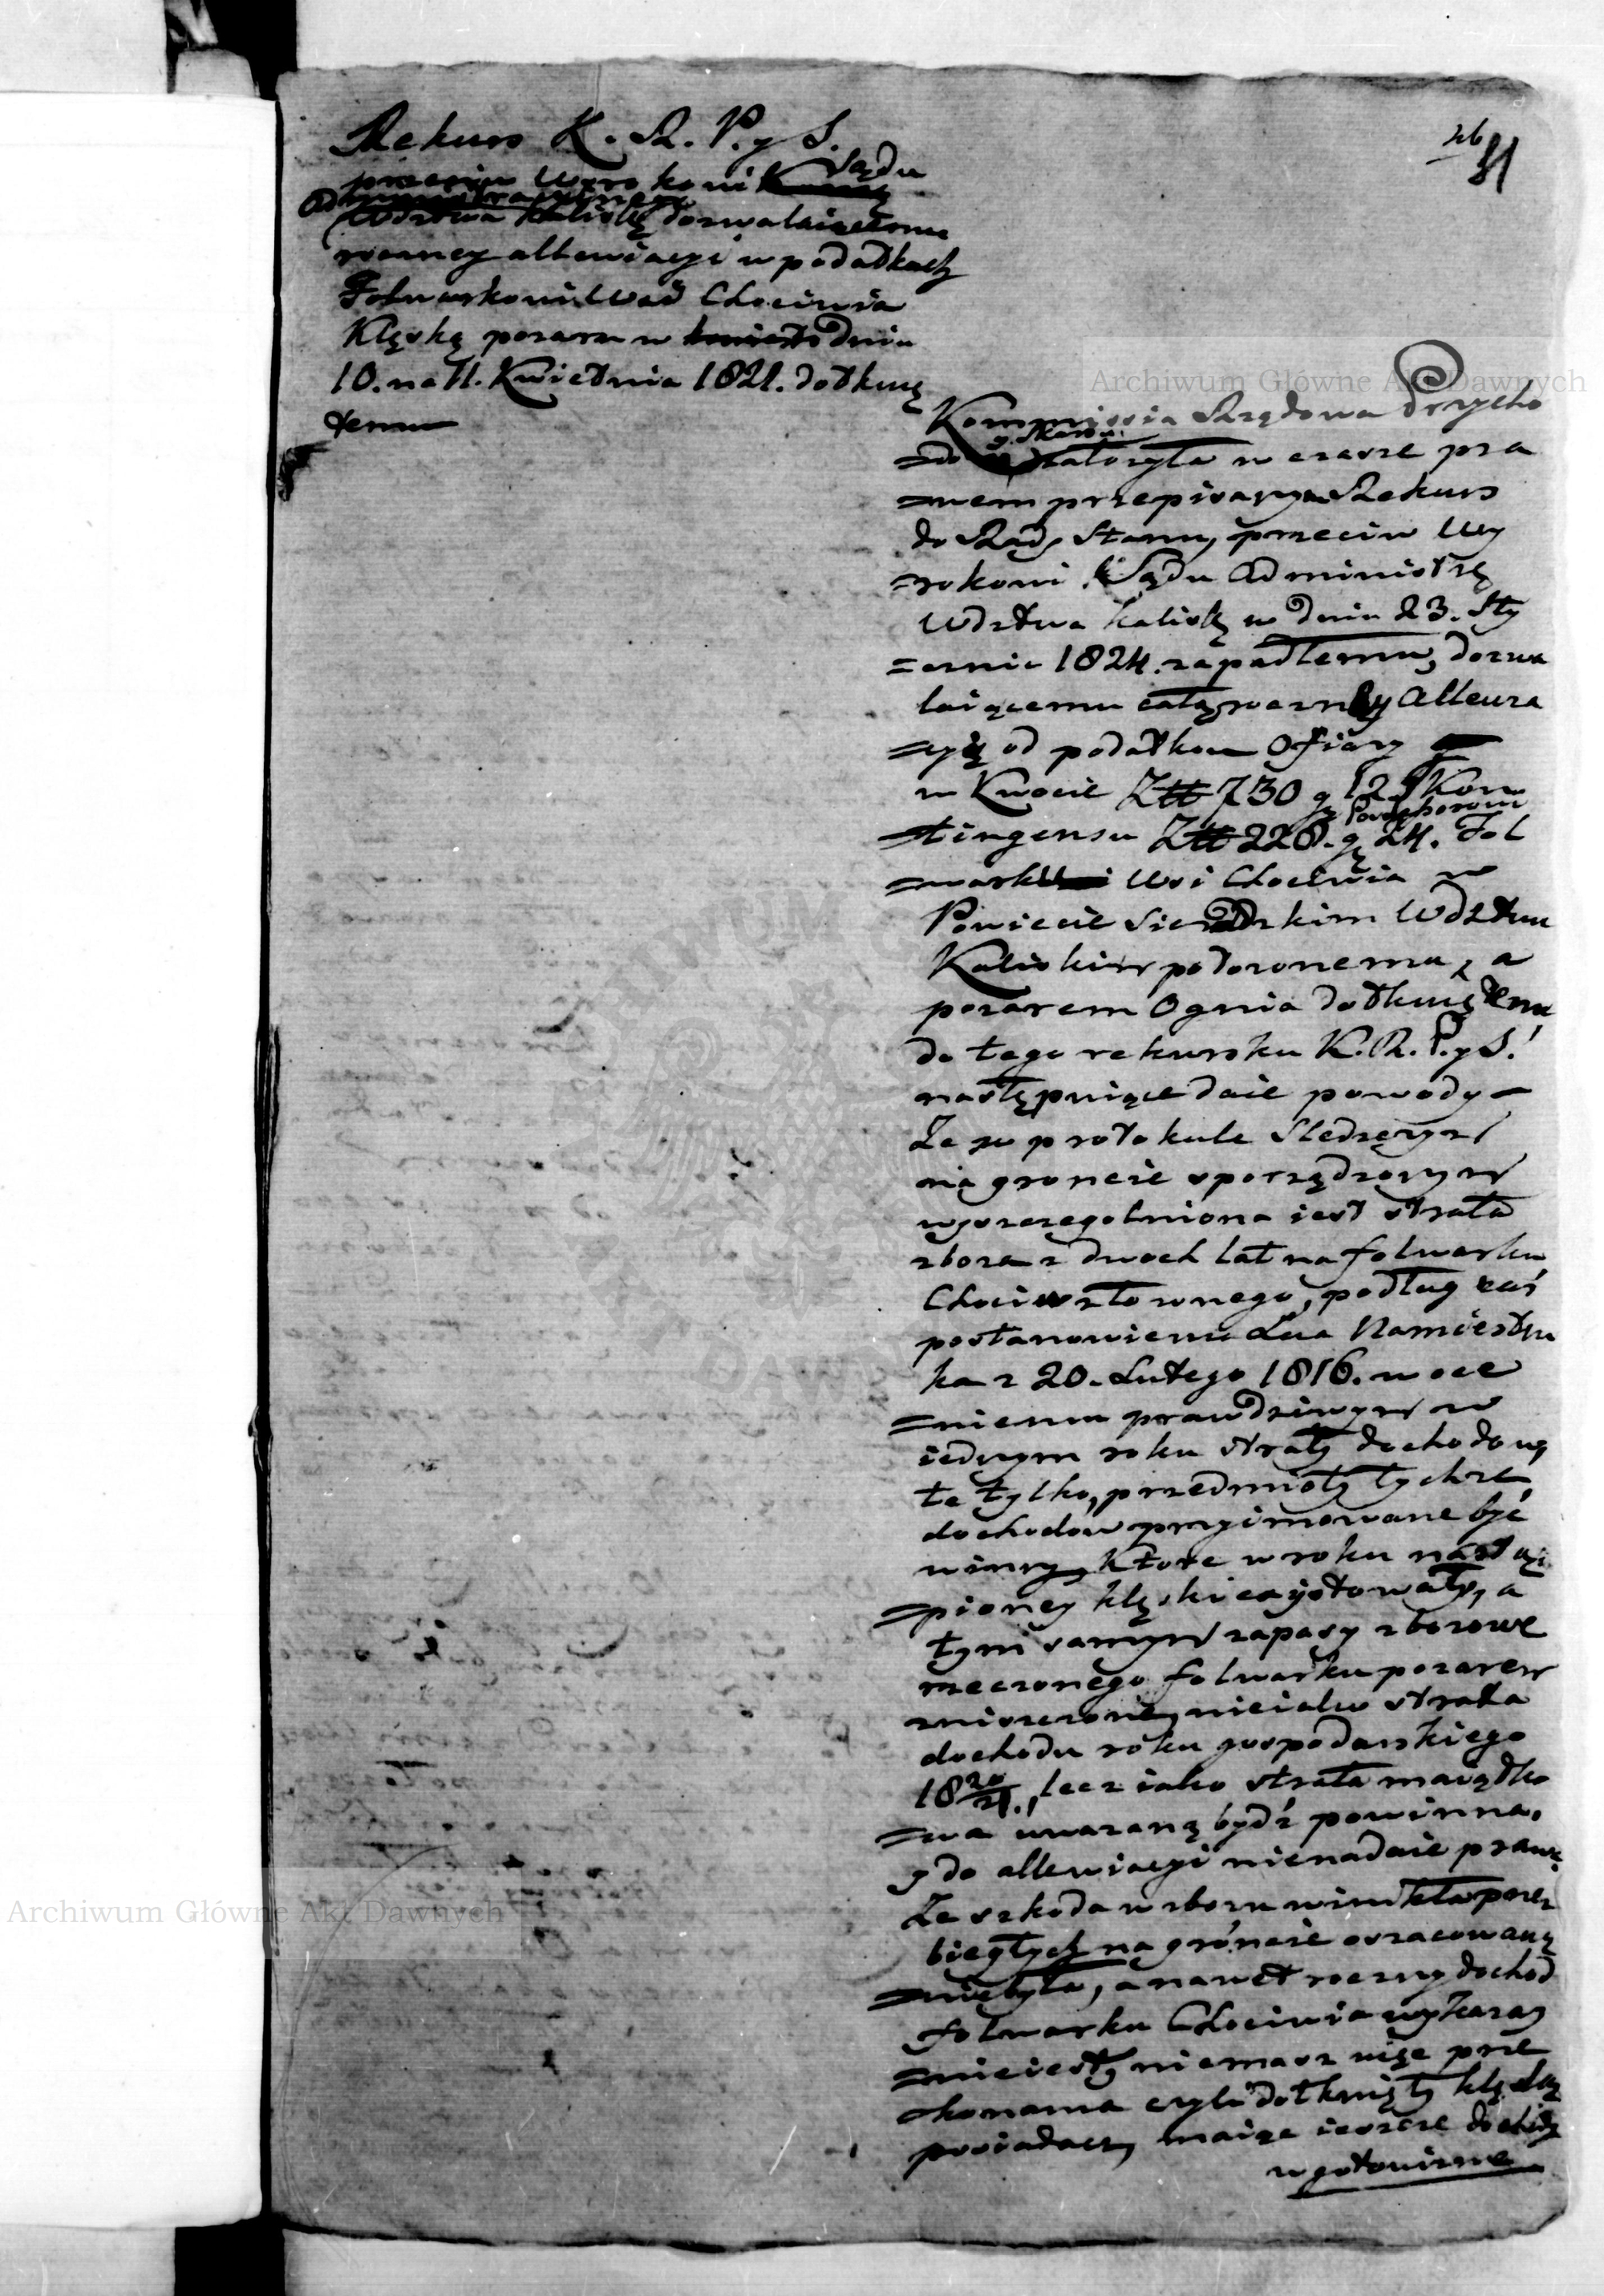 26
31
Rekurs K. R. P. y S.
przeciw Wyrokowi Sądu
Administracyinego
Wdztwa Kalisk dozwalaiącemu
roczney allewiacyi w podatkach
Folwarkowi Wsi Chociwia
Klęską pozaru w dniu
10. na 11. Kwietnia 1821. dotknię
temu
Kommissia Rządowa Przycho
=do y Skarbu założyła w czasie pra
=wem przepisanym Rekurs
do Rady Stanu, przeciw Wy
=rokowi Sądu Administrę
Wdztwa Kalisk w dniu 23. Sty
=cznia 1824. zapadłemu, dozwa
laiącemu całą roczny Allewia
=cyią od podatkow Ofiary
w Kwocie Ztt 730 g 12 y Kon
=tingensu Ztt 228. g 24. Fol
=wark Wsi Chociwia w
Powiecie Sieradzkim Wdztwu
Kaliskim położonemu, a
pozarem Ognia dotkniętemu
do tego rekursku K. R. P. y S.
następuiące daie powody –
Ze w protokule Sledczym
na gruncie sporządzonym
wyszczegolniona iest strata
zboza z dwoch lat na folwarku
Chociw złozonego, podług zaś
postanowienia Xcia Namiestni
ka z 20. Lutego 1816. w oce
=nieniu prawdziwym w
iednym roku straty dochodowy
te tylko, przedmioty tychze
dochodow przyimowane być
winny, Które w roku nastą
=pioney klęski exystowały, a
tym samym zapasy zbozowe
rzeczonego folwarku pozarem
zniszczone, nie iako strata
dochodu roku gospodarskiego
18 20/21., lecz iako strata maiątko
=wa uwazaną bydź powinna,
y do allewiacyi nienadaie prawa.
Ze szkoda w zbozu winikła przez
biegłych na gruncie oszacowaną
=niebyła, a nawet roczny dochod
folwarku Chociwia wykazany
=nieiest, niemasz więc prze
konania czyli dotknięty klęską
posiadacz, maiąc ieszcze dochody
w gotowiznie
Archiwum Główne Akt Dawnych
Archiwum Główne Akt Dawnych